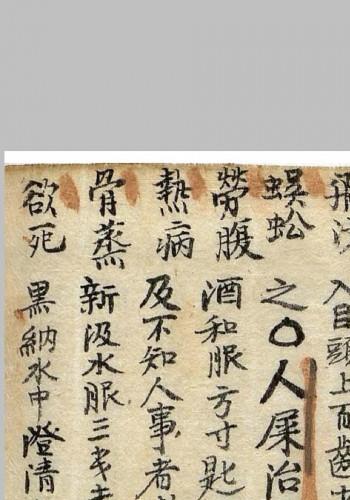 入目頭上面齒
蜈蚣之〇人屎治
勞腹酒和服方寸匙
熱病及不知人事者
骨蒸新汲水服三
欲死黑納水中澄清